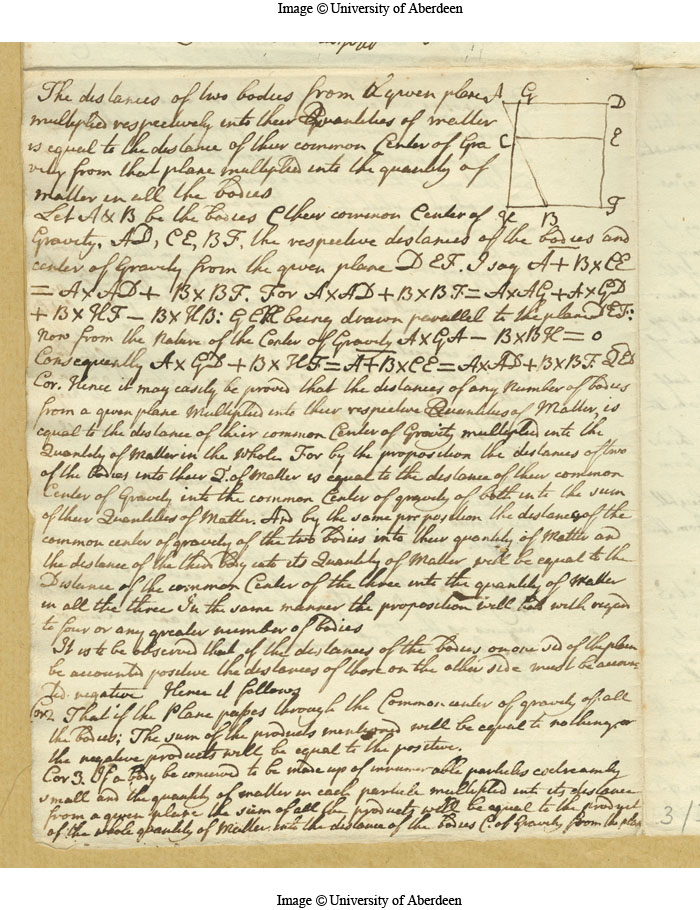 Image © University of Aberdeen
The distances of two bodies from a given plane A G D
multiplied respectively into their Quantities of matter
is equal to the distance of their common Center of Gra C E
vity from that plane multiplied into the quantity of
matter in all the bodies
Let A & B be the bodies C their common Center of H B F
Gravity. AD, CE, BF, the respective distances of the bodies and
center of Gravity from the given plane DEF. I say A+B×CE
= A×AD + B×BF. For A×AD + B×BF = A×AG + A×GD
+ B×HF − B×HB: GCH being drawn parallel to the plan DEF:
now from the nature of the Center of Gravity A×GA − B×BH = 0
Consequently A×GD + B×HF = A+B×CE = A×AD + B×BF. QED
Cor. Hence it may easily be proved that the distances of any Number of bodies
from a given plane Multiplied into their respective Quantities of Matter, is
equal to the distance of their common Center of Gravity multiplied into the
Quantity of Matter in the whole. For by the proposition the distances of two
of the bodies into their Q. of Matter is equal to the distance of their common
Center of Gravity into the common Center of gravity of both into the sum
of their Quantities of Matter. And by the same proposition the distances of the
common center of gravity of the two bodies into their quantity of Matter and
the distance of the third body into its Quantity of Matter will be equal to the
Distance of the common Center of the three into the quantity of Matter
in all the three In the same manner the proposition will hold with regard
to four or any greater number of bodies
It is to be observed that if the distances of the bodies on one sid of the plane
be accounted positive the distances of those on the other side must be accoun
ted negative Hence it follows
Cor 2 That if the Plane passes through the Common center of gravity of all
the bodies; The sum of the products mentioned will be equal to nothing, or
the negative products will be equal to the positive.
Cor 3. If a body be conceived to be made up of innumerable particles extreamly
small and the quantity of matter in each particle multiplied into its distance
from a given plane the sum of all the products will be equal to the product
of the whole quantity of Matter into the distance of the bodies C. of Gravity from the plan
3/
Image © University of Aberdeen